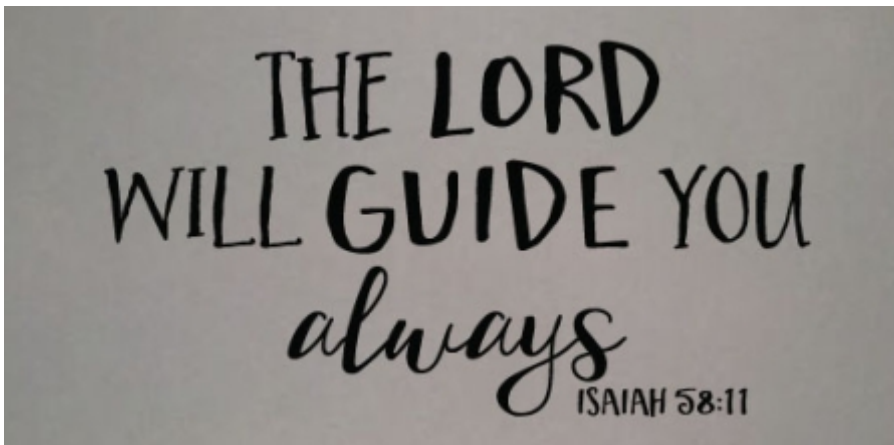 THE LORD
WILL GUIDE YOU
always
ISAIAH 58:11